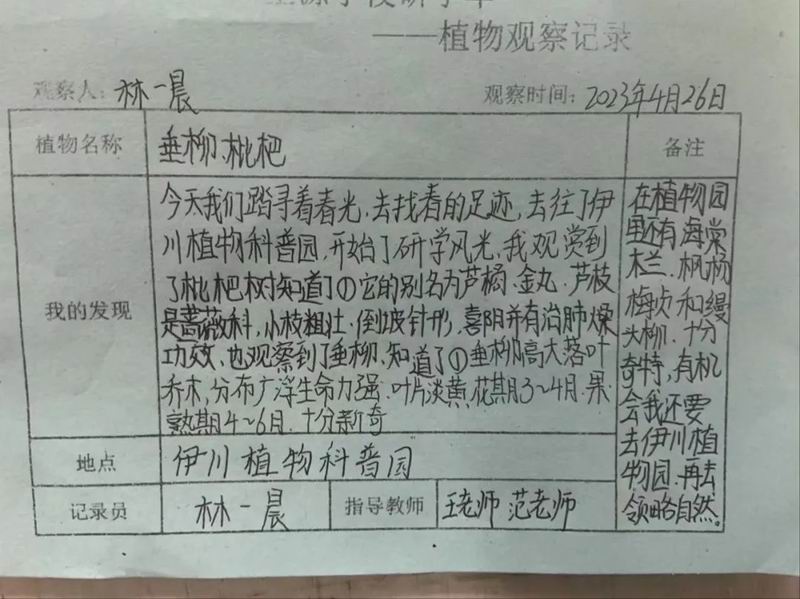 ——植物观察记录
观察人：林一晨
观察时间：2023年4月26日
植物名称
垂柳、枇杷
备注
我的发现
今天我们踏寻着春光，去找春的足迹，去往了伊
川植物科普园，开始了研学风光，我观赏到
了枇杷树知道了①它的别名为芦橘、金丸、芦枝
是蔷薇科，小枝粗壮，倒披针形，喜阴并有治肺燥
功效、也观察到了垂柳，知道了①垂柳高大落叶
乔木，分布广浮生命力强，叶片淡黄，花期3~4月，果
熟期4~6月，十分新奇
在植物园
里还有海棠
木兰、枫杨
梅贞和缦
大柳、十分
奇特，有机
会我还要
去伊川植
物园，再去
领略自然。
地点
伊川植物科普园
记录员
林一晨
指导教师
王老师 范老师